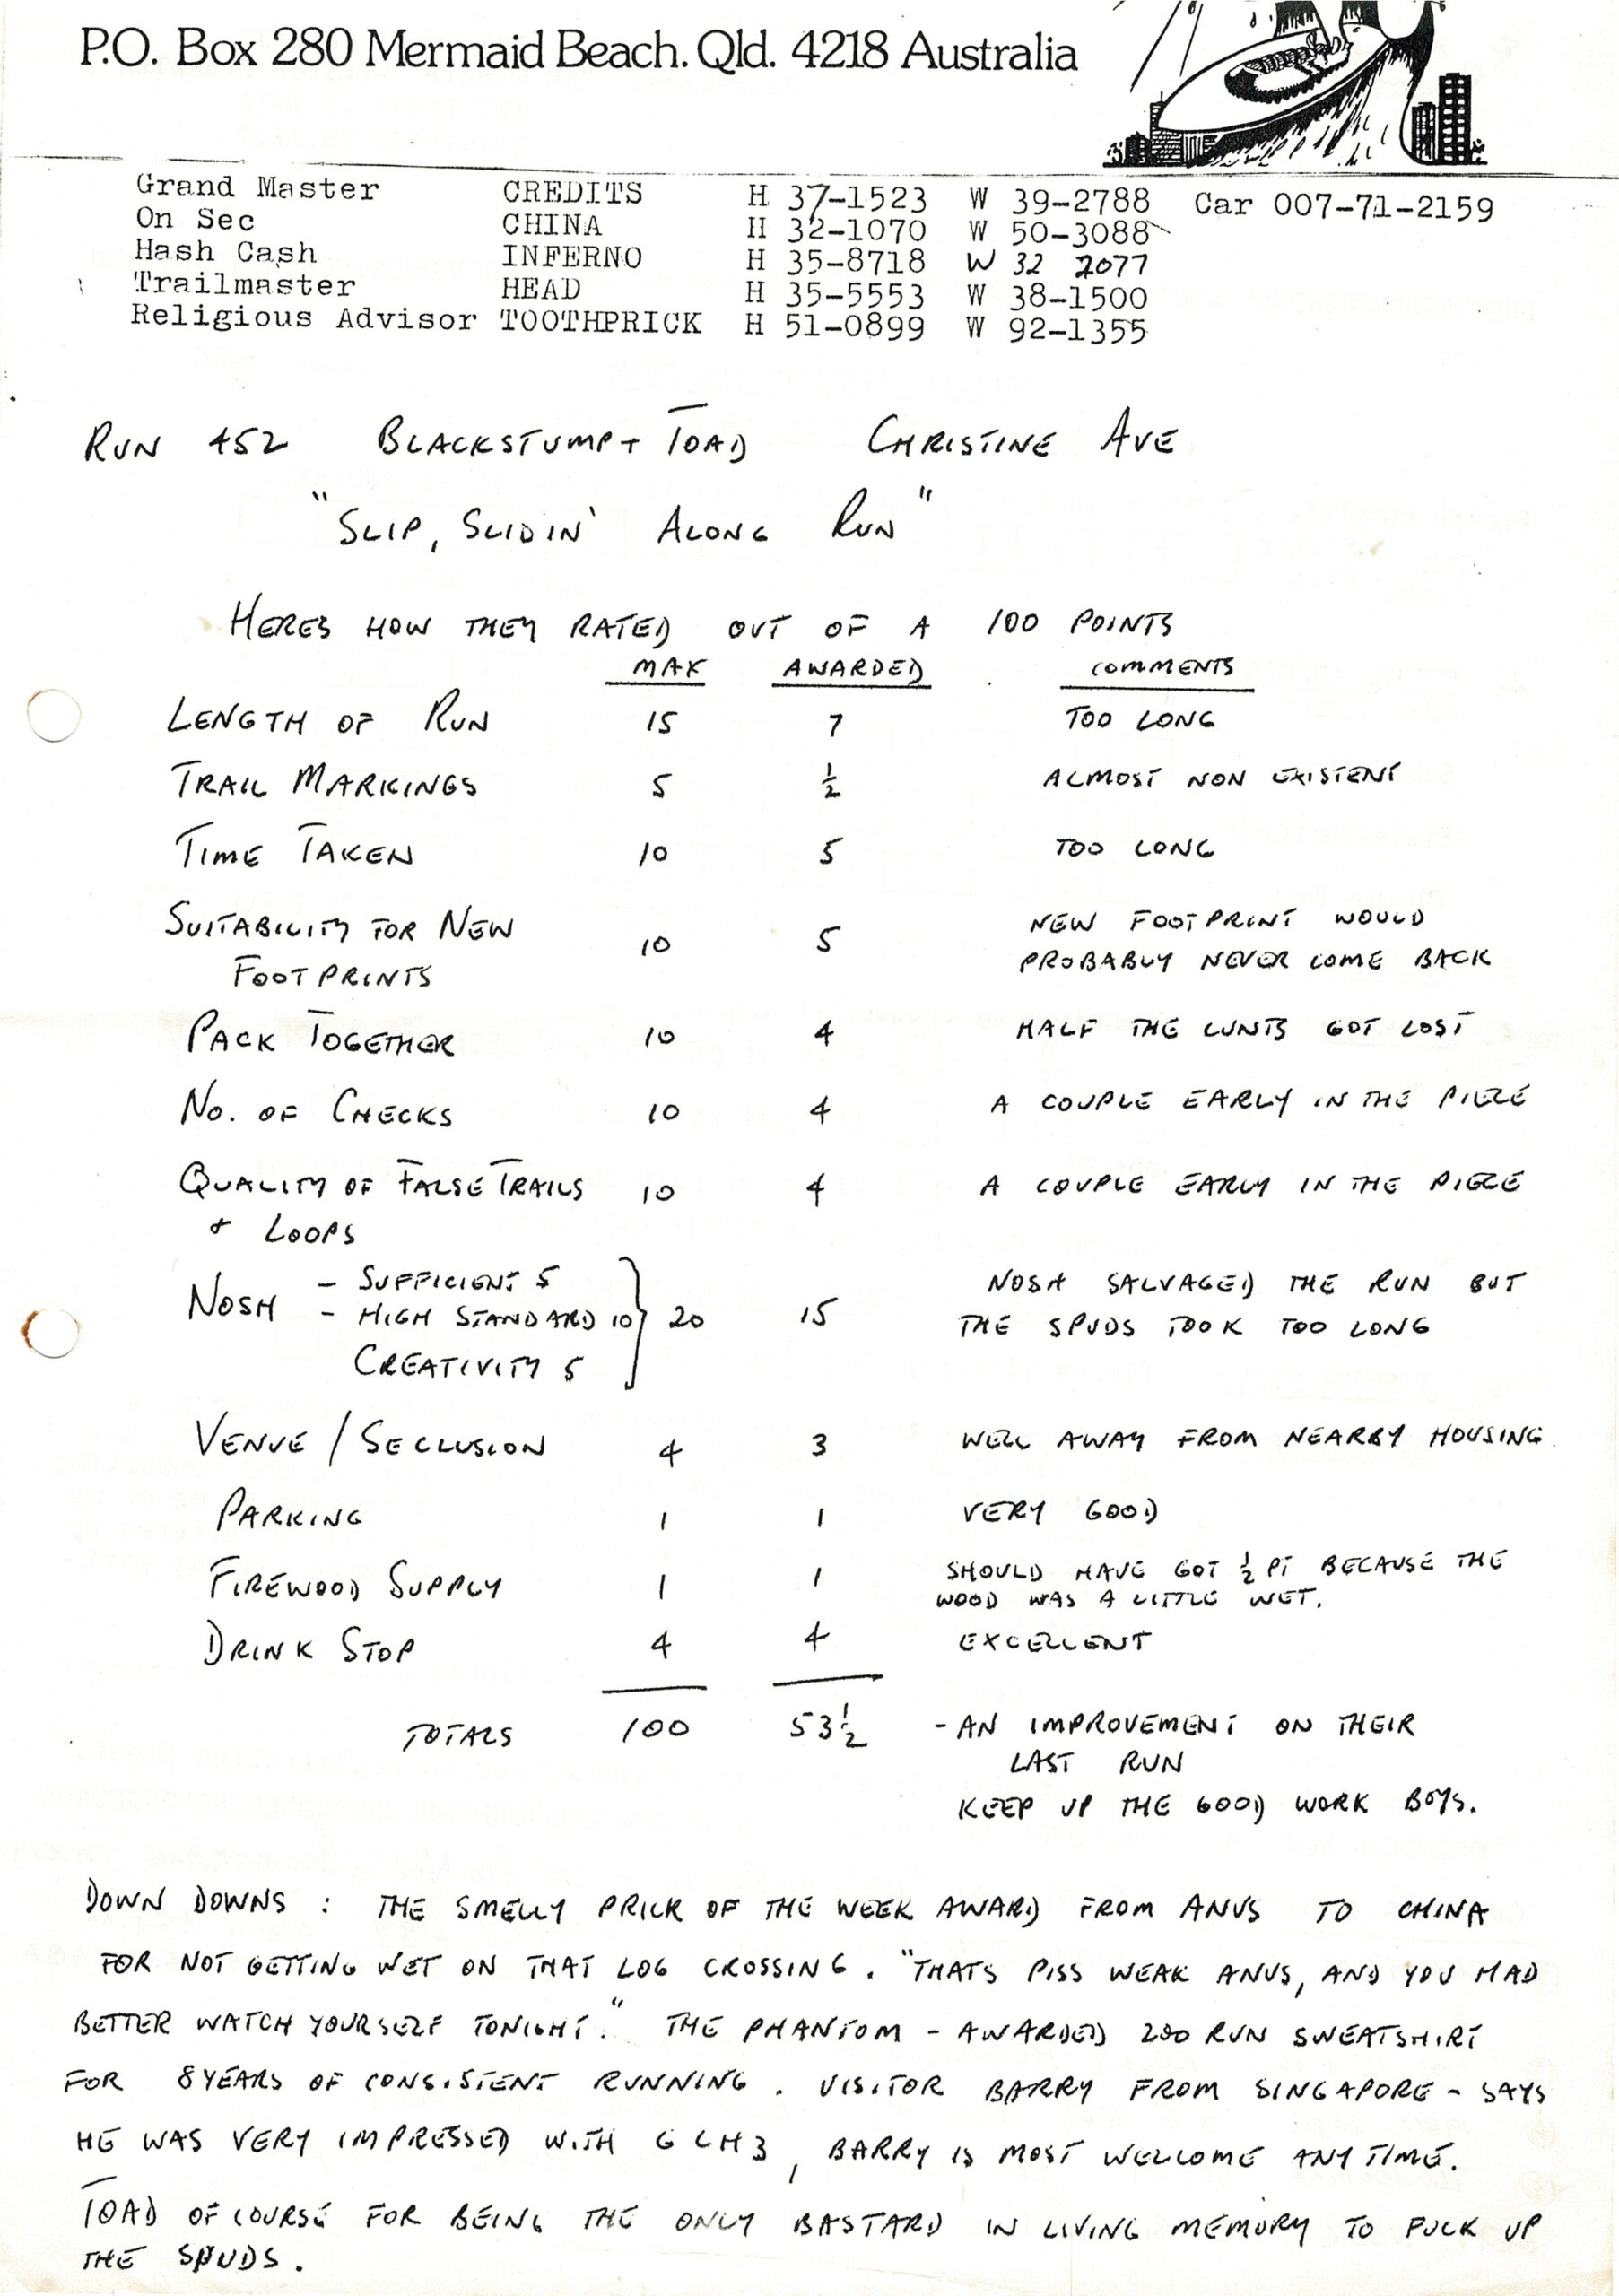 P.O. Box 280 Mermaid Beach. Qld. 4218 Australia
Grand Master CREDITS H 37-1523 W 39-2788 Car 007-71-2159
On Sec CHINA H 32-1070 W 50-3088
Hash Cash INFERNO H 35-8718 W 32 2077
Trailmaster HEAD H 35-5553 W 38-1500
Religious Advisor TOOTHPRICK H 51-0899 W 92-1355
RUN 452 BLACKSTUMP + TOAD CHRISTINE AVE
"SLIP, SLIDIN' ALONG RUN"
HERES HOW THEY RATED OUT OF A 100 POINTS
MAX AWARDED COMMENTS
LENGTH OF RUN 15 7 TOO LONG
TRAIL MARKINGS 5 ½ ALMOST NON EXISTENT
TIME TAKEN 10 5 TOO LONG
SUITABILITY FOR NEW FOOTPRINTS 10 5 NEW FOOTPRINT WOULD
PROBABLY NEVER COME BACK
PACK TOGETHER 10 4 HALF THE CUNTS GOT LOST
NO. OF CHECKS 10 4 A COUPLE EARLY IN THE PIECE
QUALITY OF FALSE TRAILS 10 4 A COUPLE EARLY IN THE PIECE
+ LOOPS
NOSH - SUFFICIENT 5
- HIGH STANDARD 10 } 20 15 NOSH SALVAGED THE RUN BUT
CREATIVITY 5 THE SPUDS TOOK TOO LONG
VENUE / SECLUSION 4 3 WELL AWAY FROM NEARBY HOUSING.
PARKING 1 1 VERY GOOD
FIREWOOD SUPPLY 1 1 SHOULD HAVE GOT ½ PT BECAUSE THE
WOOD WAS A LITTLE WET.
DRINK STOP 4 4 EXCELLENT
TOTALS 100 53½ - AN IMPROVEMENT ON THEIR
LAST RUN
KEEP UP THE GOOD WORK BOYS.
DOWN DOWNS : THE SMELLY PRICK OF THE WEEK AWARD FROM ANUS TO CHINA
FOR NOT GETTING WET ON THAT LOG CROSSING. "THATS PISS WEAK ANUS, AND YOU HAD
BETTER WATCH YOURSELF TONIGHT." THE PHANTOM - AWARDED 200 RUN SWEATSHIRT
FOR 8 YEARS OF CONSISTENT RUNNING. VISITOR BARRY FROM SINGAPORE - SAYS
HE WAS VERY IMPRESSED WITH GCH3, BARRY IS MOST WELCOME ANYTIME.
TOAD OF COURSE FOR BEING THE ONLY BASTARD IN LIVING MEMORY TO FUCK UP
THE SPUDS.